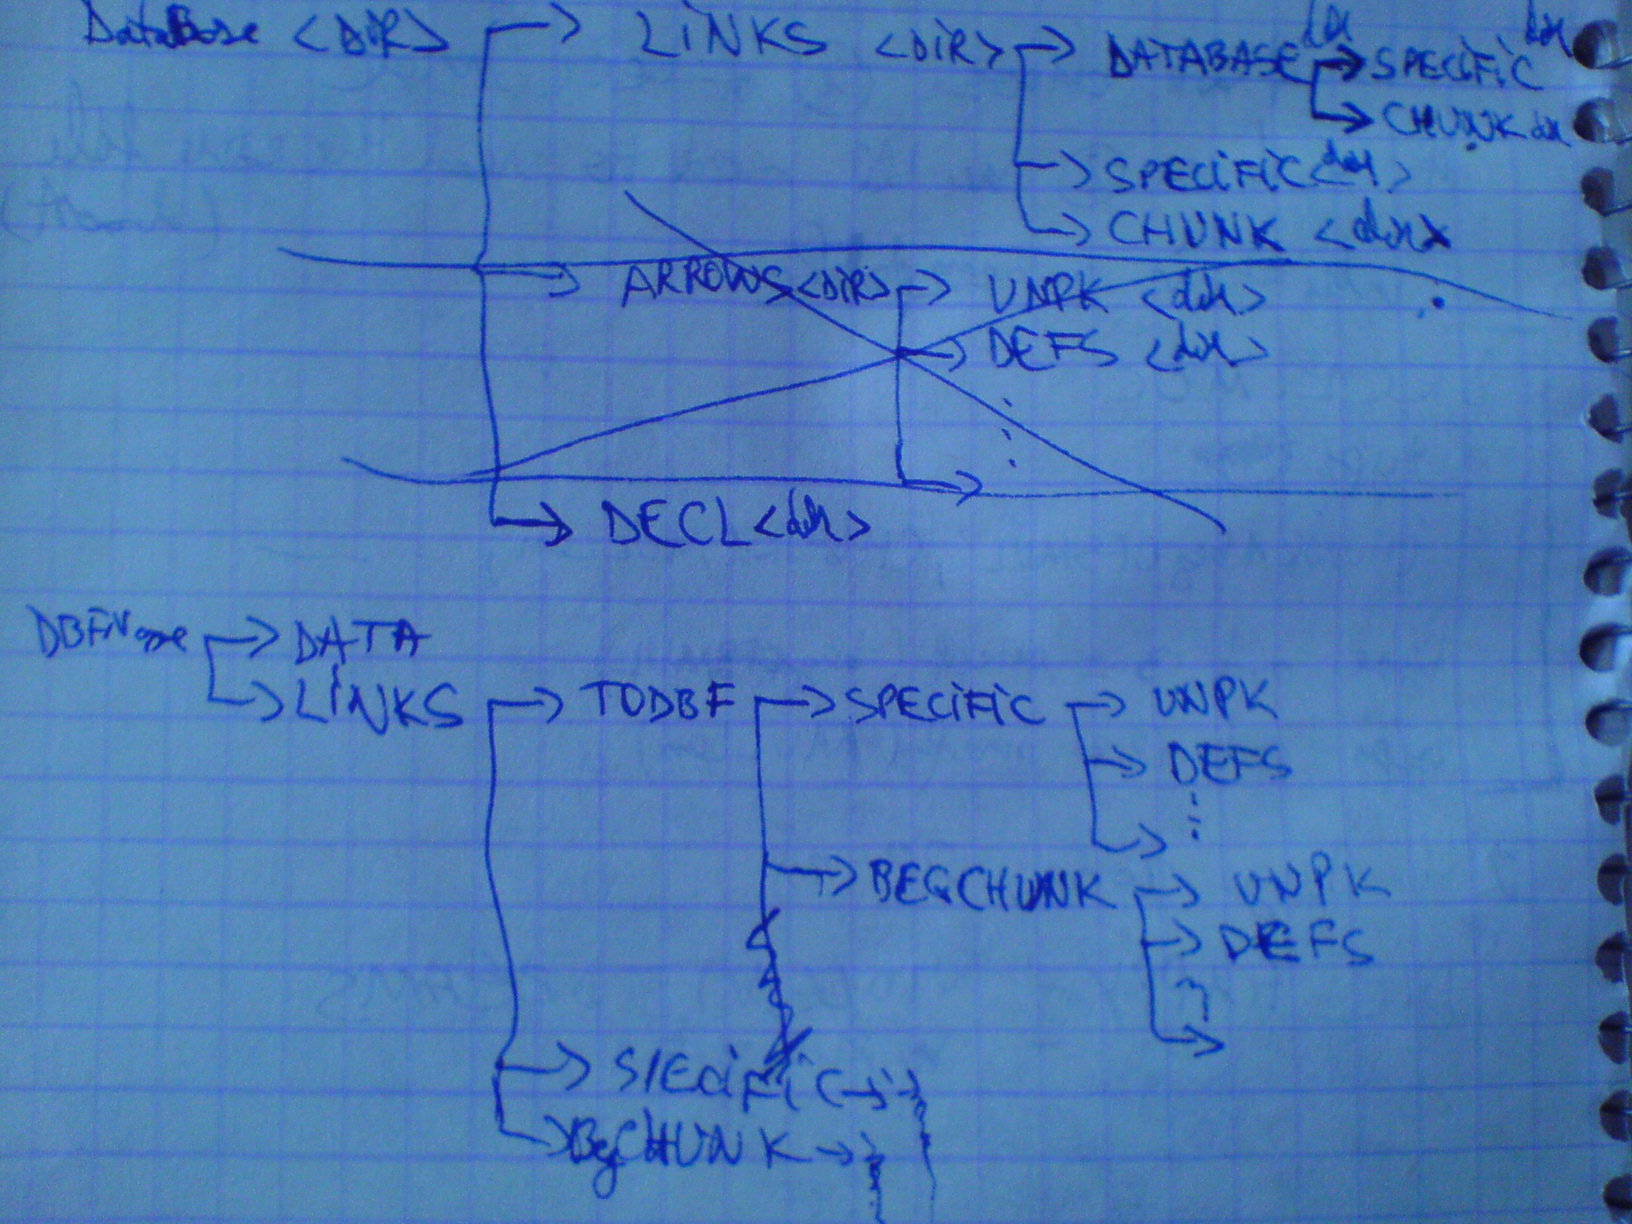 DataBase <DIR> → LiNKS <DiR> → DATABASE dir → SPECiFiC dir
→ CHUNK dir
→ SPECiFiC <dir>
→ CHUNK <dir>
→ ARROWS <DiR> → UNPK <dir>
→ DEFS <dir>
→ DECL <dir>
DBFName → DATA
→ LiNKS → TODBF → SPECiFiC → UNPK
→ DEFS
→ BEGCHUNK → UNPK
→ DEFS
→ SPECiFiC →
→ BegCHUNK →